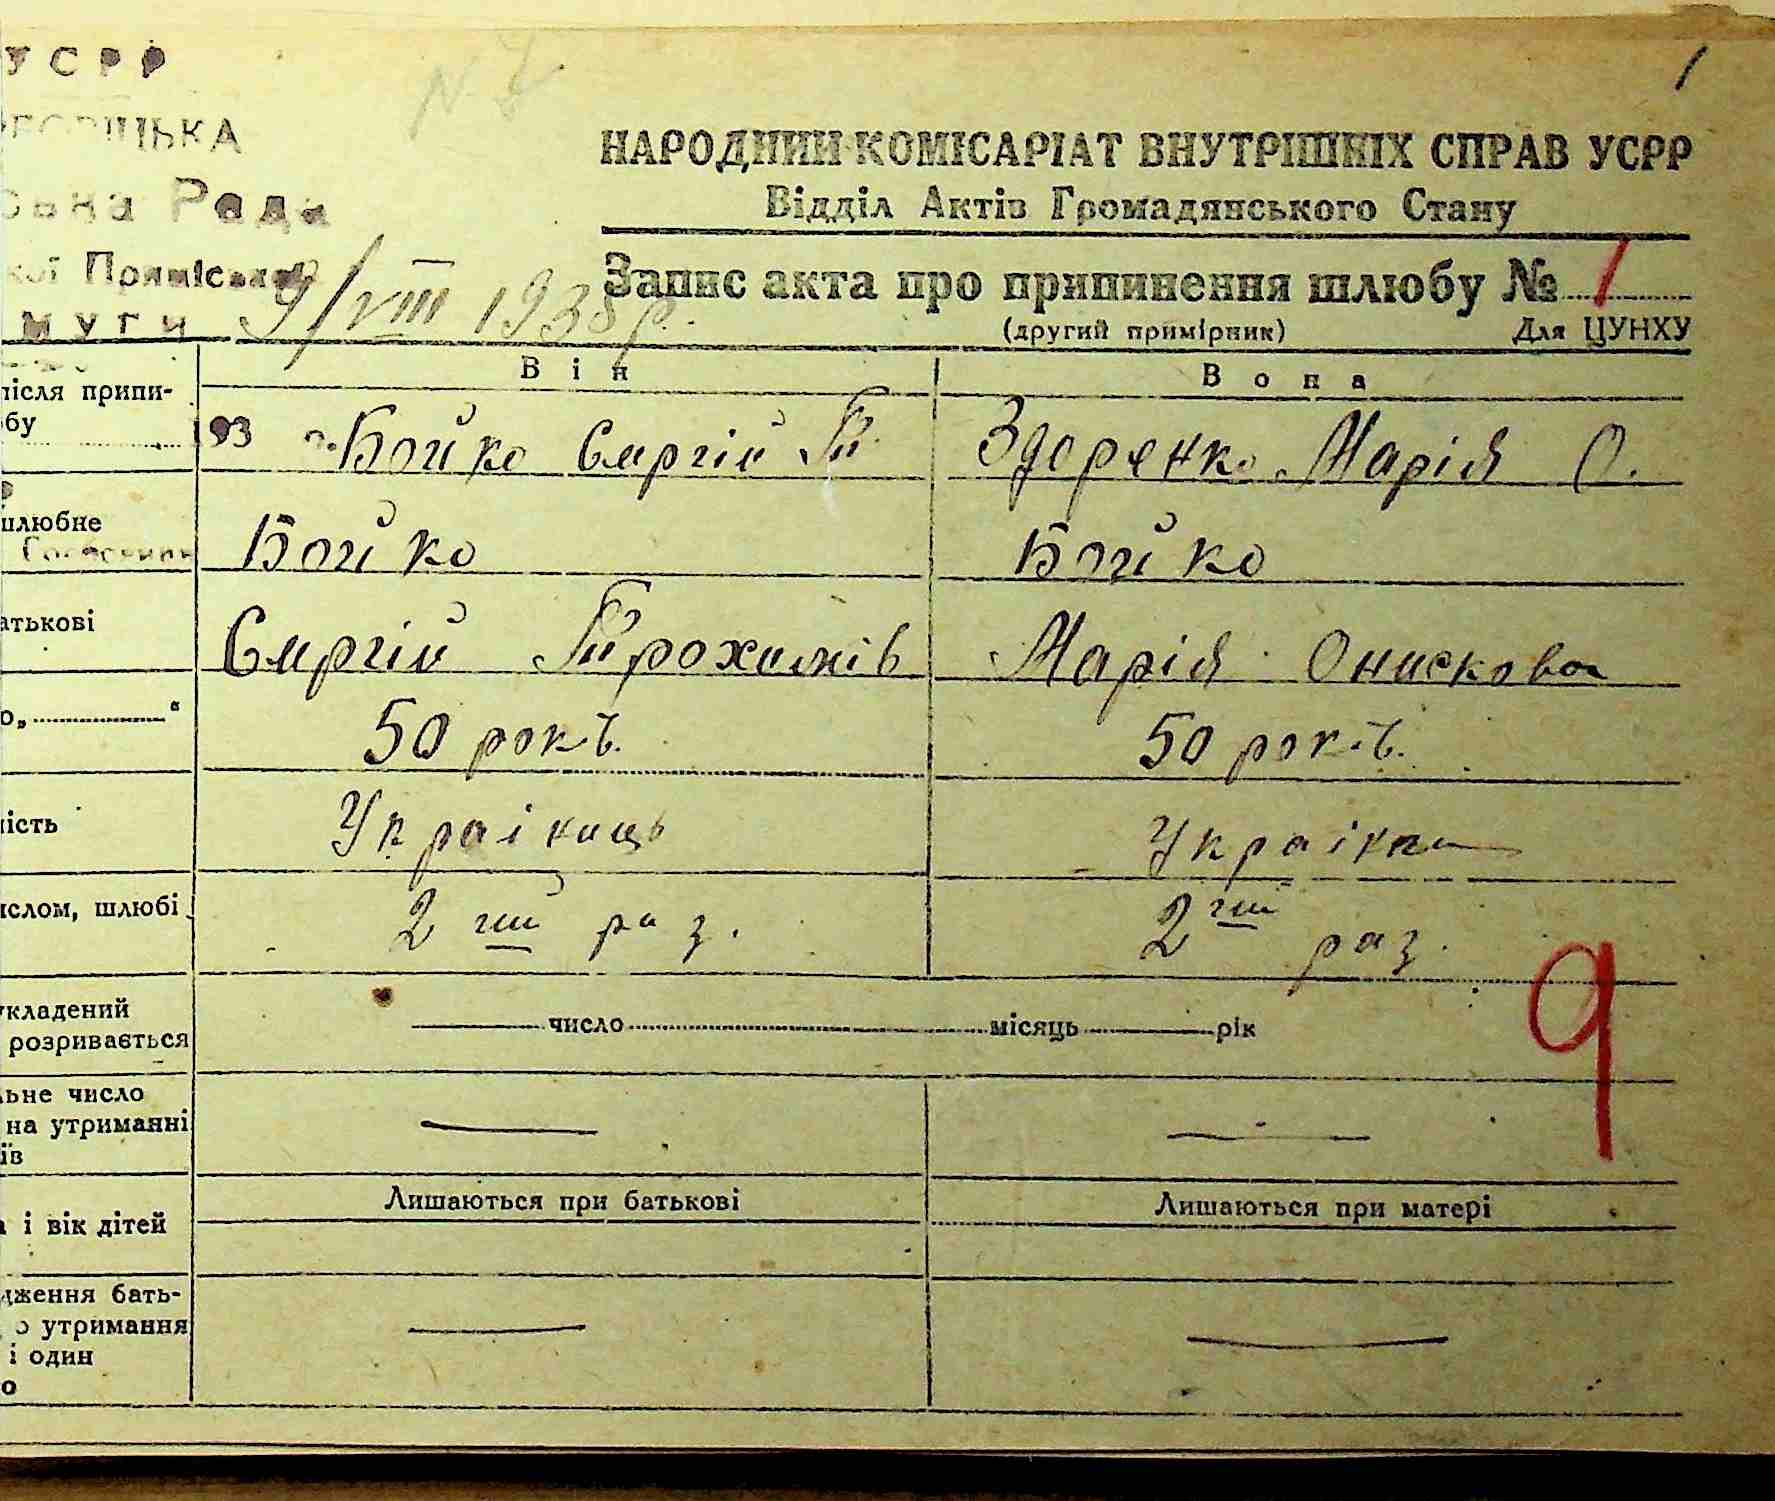 УСРР
Рада
Приміської
муги
9/VIII 1938 р.
1
НАРОДНИЙ КОМІСАРІАТ ВНУТРІШНІХ СПРАВ УСРР
Відділ Актів Громадянського Стану
Запис акта про припинення шлюбу № 1
(другий примірник) Для ЦУНХУ
Він Вона
після припи-
бу
193 р. Бойко Сергій Т. Здоренко Марія О.
шлюбне
Бойко Бойко
атькові
Сергій Трохимів Марія Онискова
о„ “
50 років. 50 років.
ність
Українець Українка
ислом, шлюбі
2гий раз. 2гий раз.
укладений
розривається
число місяць рік
9
льне число
на утриманні
їв
Лишаються при батькові Лишаються при матері
а і вік дітей
дження бать-
о утримання
і один
о